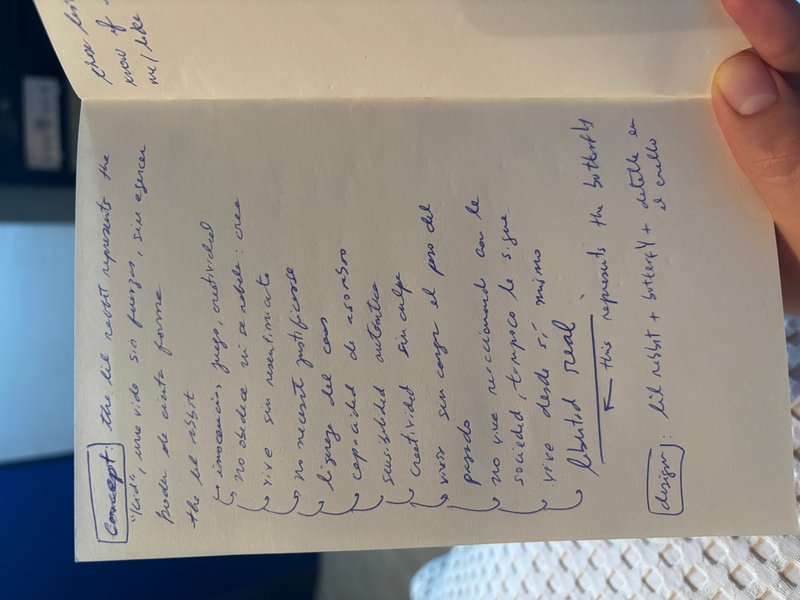 know of
me/like
concept: the lil rabbit represents the
"kid", una vida sin fuerzas, sin ejercer
poder de cierta forma
the lil rabbit
inocencia, juego, creatividad
no obedece ni se rebela: crea
vive sin resentimiento
no necesita justificarse
ligereza del caos
capacidad de asombro
sensibilidad auténtica
creatividad sin culpa
vivir sin cargar el peso del
pasado
no vive reaccionand con la
sociedad, tampoco le sigue
vive desde sí mismo
libertad real
this represents the butterfly
design: lil rabbit + butterfly + detalle en
el cuello